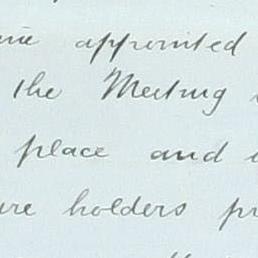 appointed
the Meeting
place and
holders